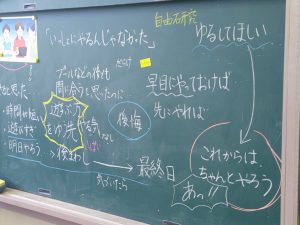 「いっしょにやるんじゃなかった」
自由研究
ゆるしてほしい
プールなどの後でも
間に合うと思ったのに
早目にやっておけば
先にやれば
と思った
時間が
遊びすぎ
明日やろう
遊ぶ方
を優先
やる気なし
後悔
後まわし
気づいたら
最終日
あっ!!
これからは
ちゃんとやろう